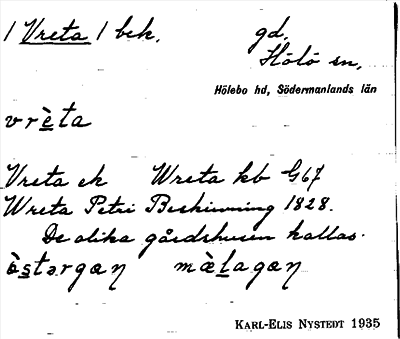 / Vreta / bek. gd.
Hölö sn,
Hölebo hd, Södermanlands län
vrèta
Vreta ek Wreta kb G67
Wreta Petri Beskrivning 1828.
De olika gårdshusen kallas.
òstərgaɳ mæ̀lagaɳ
KARL-ELIS NYSTEDT 1935